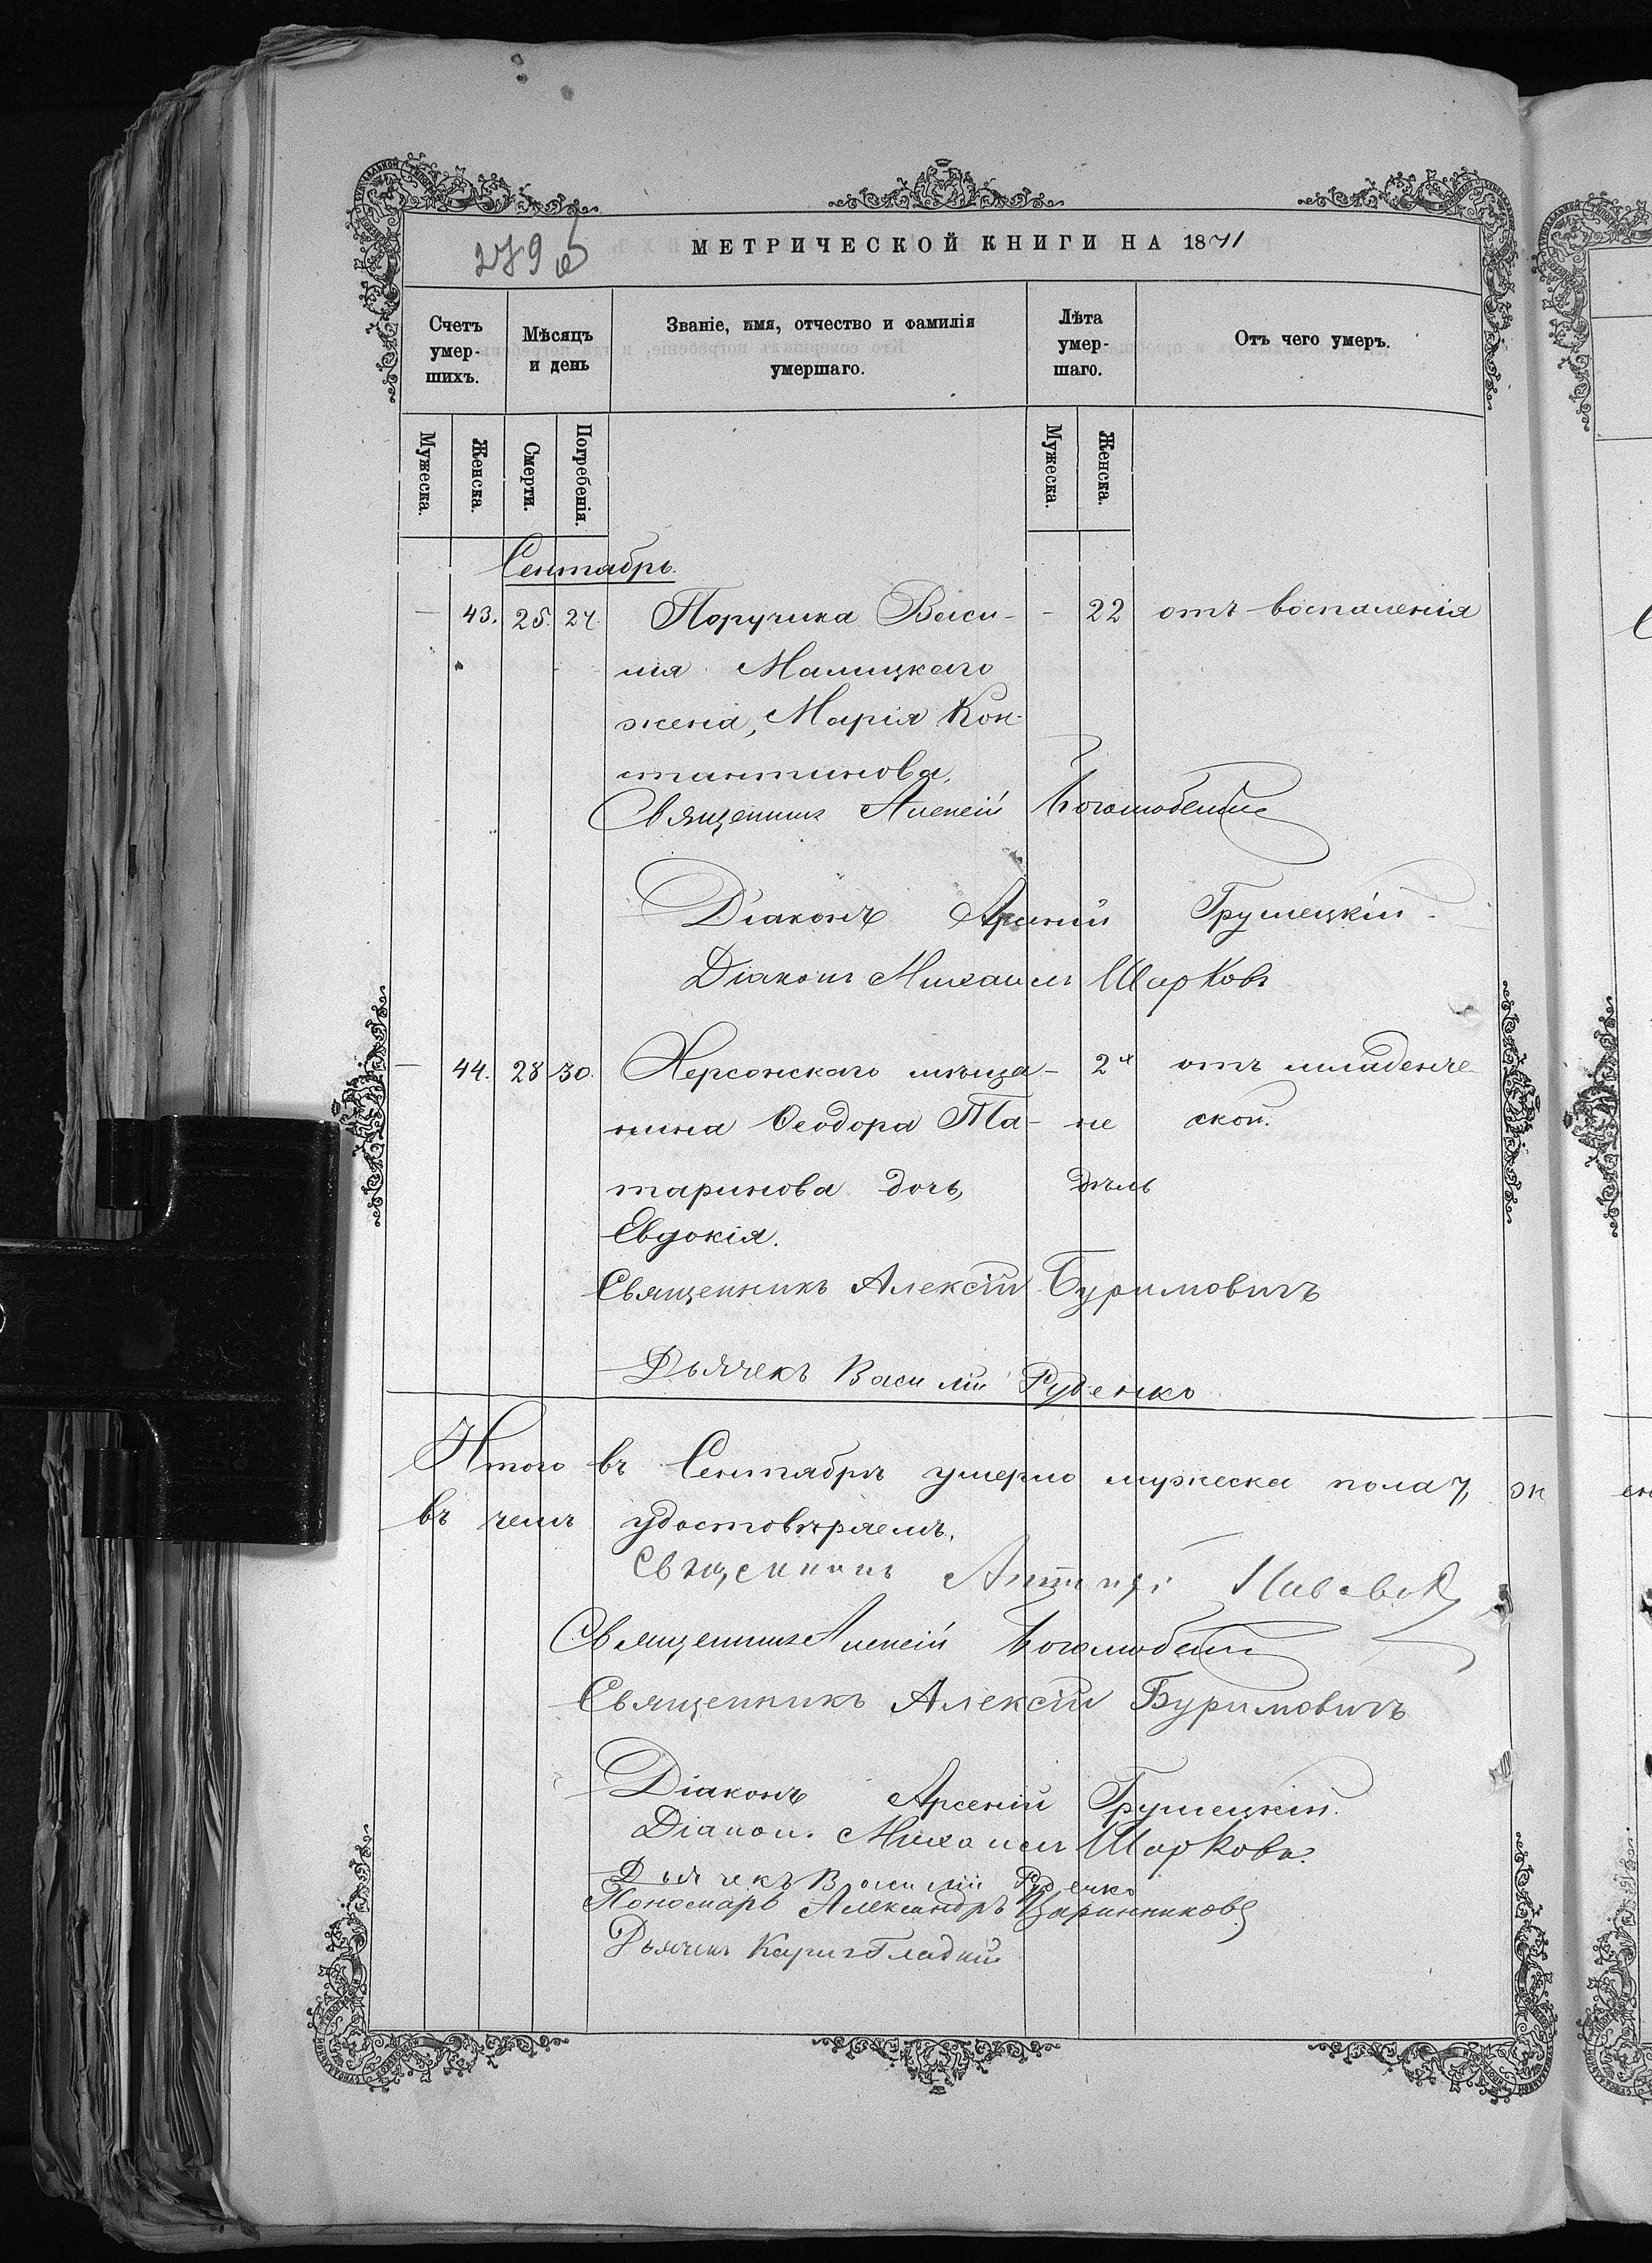 279 об
МЕТРИЧЕСКОЙ КНИГИ НА 1871
Счетъ умер- шихъ.
Мѣсяцъ и день
Званіе, имя, отчество и фамилія умершаго.
Лѣта умер- шаго.
Отъ чего умеръ.
Мужеска. Женска. Смерти. Погребенія. Мужеска. Женска.
Сентябрь.
— 43. 25. 27. Поручика Васи- - 22 отъ воспаленія
лія Малицкаго
жена, Марія Кон-
стантинова.
Священникъ Алексій Боголюбскій
Діаконъ Арсеній Грушецкій.
Діаконъ Михаилъ Шарковъ
— 44. 28 30. Херсонскаго мѣща- 2х отъ младенче-
нина Ѳеодора Та- не ской.
таринова дочь, дѣль
Евдокія.
Священникъ Алексій Буримовичъ
Дьячекъ Василій Руденко
Итого въ Сентябрѣ умерло мужеска пола 7, ж
въ чемъ удостовѣряемъ.
Священникъ
Священникъ Алексій Боголюбскій
Священникъ Алексій Буримовичъ
Діаконъ Арсеній Грушецкій.
Діакон. Михаилъ Шарковъ.
Дьячекъ Василій Руденко
Пономарь Александръ Царинниковъ
Дьячекъ Кирилъ Гладкій